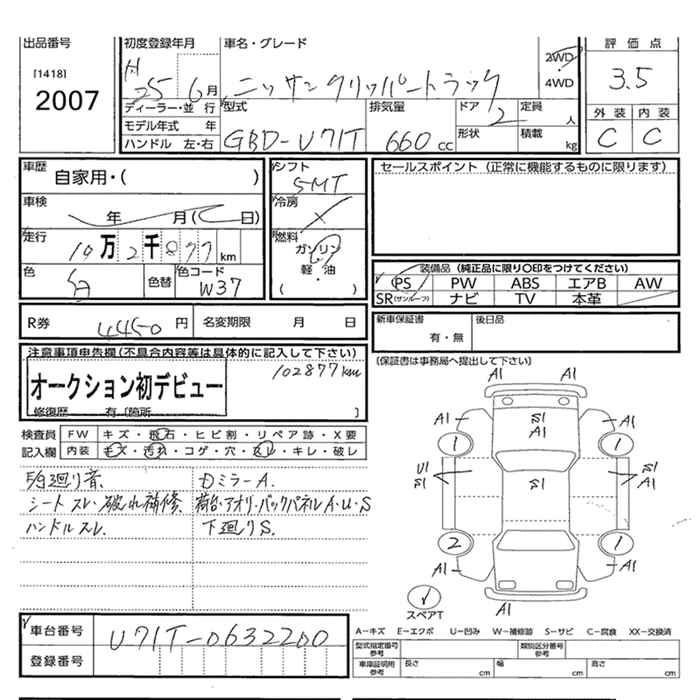 出品番号
[1418]
2007
初度登録年月
H25 6月
車名・グレード
ニッサンクリッパートラック
2WD
・
4WD
評価点
3.5
外装 内装
C C
ディーラー・並行
モデル年式 年
ハンドル 左・右
型式
GBD-U71T
排気量
660 cc
ドア 2
形状
定員 人
積載 kg
車歴
自家用・( )
車検
年 月( 日)
走行
10万2千877km
色
色替
色コード
W37
シフト
5MT
冷房
燃料
ガソリン
軽・油
( )
セールスポイント(正常に機能するものに限ります)
装備品(純正品に限り○印をつけてください)
PS PW ABS エアB AW
SR(サンルーフ) ナビ TV 本革
R券 4450円 名変期限 月 日
新車保証書
有・無
後日品
(保証書は事務局へ提出して下さい)
注意事項申告欄(不具合内容等は具体的に記入して下さい)
102877km
オークション初デビュー
修復歴 有 (箇所 )
検査員
記入欄
FW キズ・飛石・ヒビ割・リペア跡・X要
内装 キズ・汚れ・コゲ・穴・スレ・キレ・破レ
廻り音.
シートスレ・破れ補修.
ハンドルスレ.
Dミラー A.
荷台・アオリ・バックパネル A・U・S
下廻り S.
A1 A1
A1 S1 A1 A1
1 1
U1 S1 S1 S1 A1
2 1
A1 A1
1
スペアT
A1 A1
車台番号 U71T-0632200
登録番号
A-キズ E-エクボ U-凹み W-補修跡 S-サビ C-腐食 XX-交換済
型式指定番号
参考
類別区分番号
参考
車庫証明用
参考
長さ cm 幅 cm 高さ cm